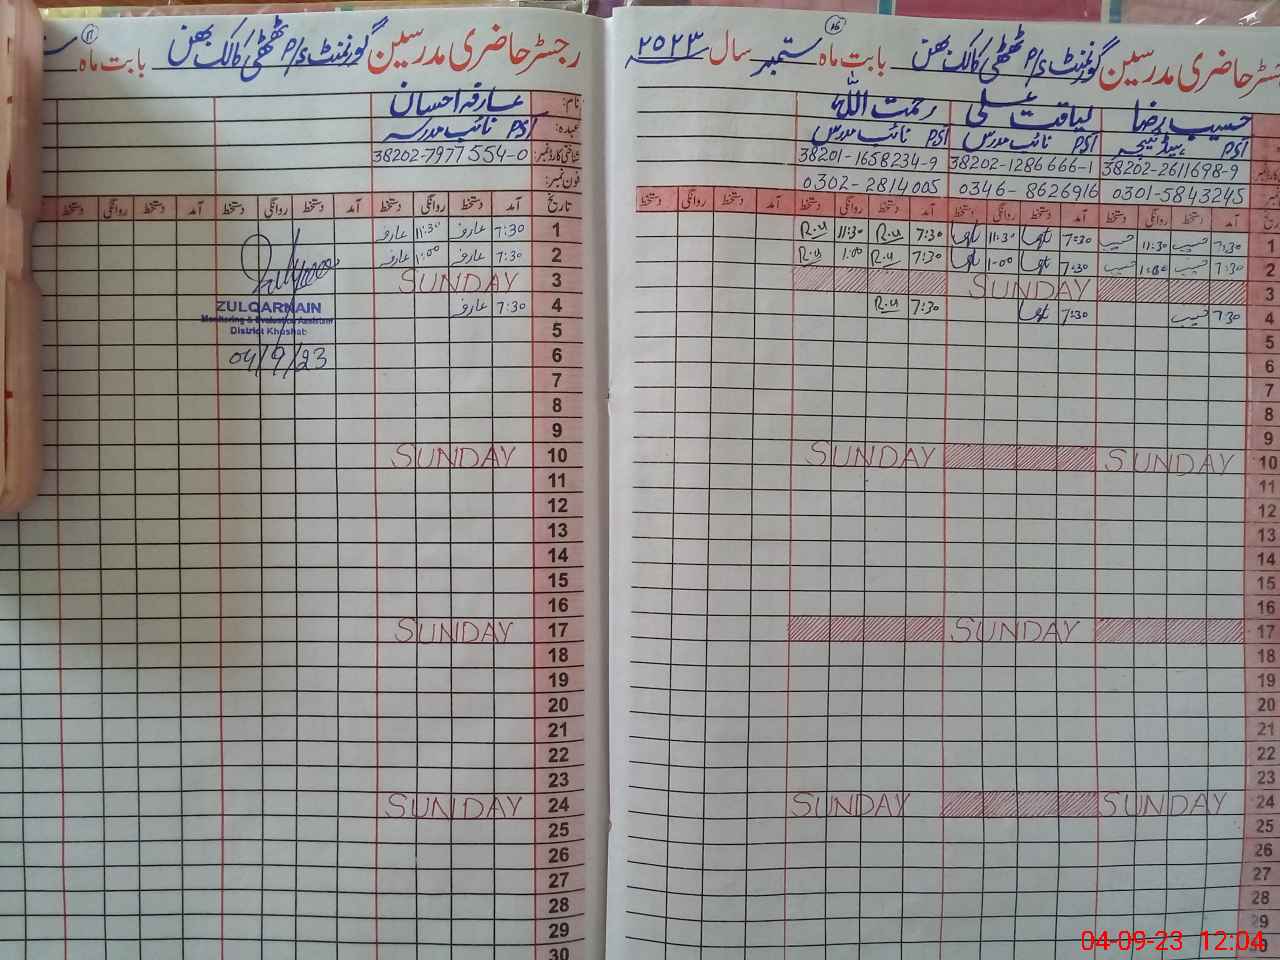 رجسٹر حاضری مدرسین گورنمنٹ P/S ٹھٹھی کالک بھن بابت ماہ ستمبر سال ۲۰۲۳
16
حسیب رضا لیاقت علی رحمت اللہ
PST ہیڈ ٹیچر PST نائب مدرس PST نائب مدرس
38202-2611698-9 38202-1286666-1 38201-1658234-9
0301-5843245 0346-8626916 0302-2814005
آمد دستخط روانگی دستخط آمد دستخط روانگی دستخط آمد دستخط روانگی دستخط دستخط روانگی دستخط
1 7:30 حسیب 11:30 حسیب 7:30 11:30 7:30 R.u 11:30 R.u
2 7:30 حسیب 1:00 حسیب 7:30 1:00 7:30 R.u 1:00 R.u
3 SUNDAY
4 7:30 حسیب 7:30 7:30 R.u
5
6
7
8
9
10 SUNDAY SUNDAY
11
12
13
14
15
16
17 SUNDAY
18
19
20
21
22
23
24 SUNDAY SUNDAY
25
26
27
28
29
30
رجسٹر حاضری مدرسین گورنمنٹ P/S ٹھٹھی کالک بھن بابت ماہ
17
نام: عارفہ احسان
عہدہ: PST نائب مدرسہ
شناختی کارڈ نمبر: 38202-7977554-0
فون نمبر:
تاریخ آمد دستخط روانگی دستخط آمد دستخط روانگی دستخط آمد دستخط روانگی دستخط
1 7:30 عارفہ 11:30 عارفہ
2 7:30 عارفہ 1:00 عارفہ
3 SUNDAY
4 7:30 عارفہ
5
6
7
8
9
10 SUNDAY
11
12
13
14
15
16
17 SUNDAY
18
19
20
21
22
23
24 SUNDAY
25
26
27
28
29
30
ZULQARNAIN
Monitoring & Evaluation Assistant
District Khushab
04/9/23
04-09-23 12:04